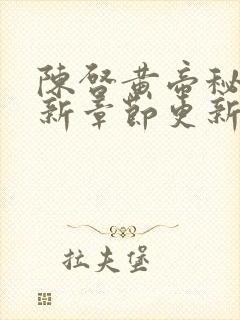 陳啓黃帝秘
新章節更新
拉夫堡